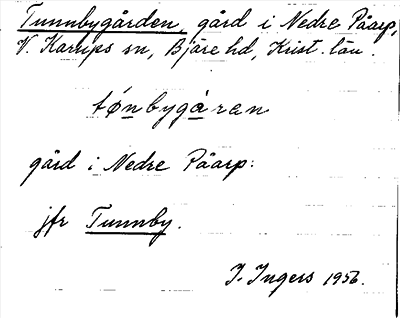 Tunnbygården, gård i Nedre Påarp,
V. Karups sn, Bjäre hd, Krist. län.
tønbygåran
gård i Nedre Påarp:
jfr Tunnby.
I. Ingers 1956.